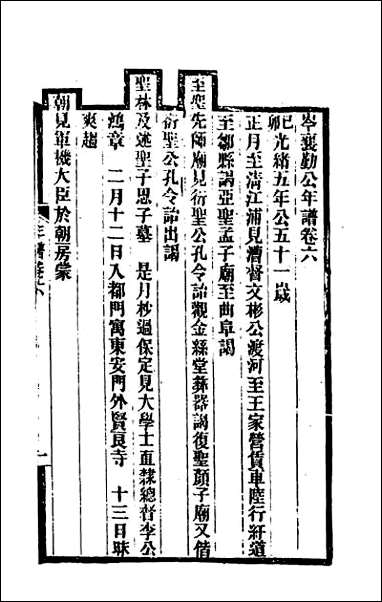 岑襄勤公年譜卷六
己卯光緒五年公五十一歲
正月至清江浦見漕督文彬公渡河至王家營賃車陸行紆道
至鄒縣謁亞聖孟子廟至曲阜謁
至聖先師廟見衍聖公孔令詒觀金絲堂彝器謁復聖顏子廟又偕
衍聖公孔令詒出謁
聖林及述聖子思子墓 是月杪過保定見大學士直隸總督李公
鴻章 二月十二日入都門寓東安門外賢良寺 十三日昧
爽趨
朝見軍機大臣於朝房蒙